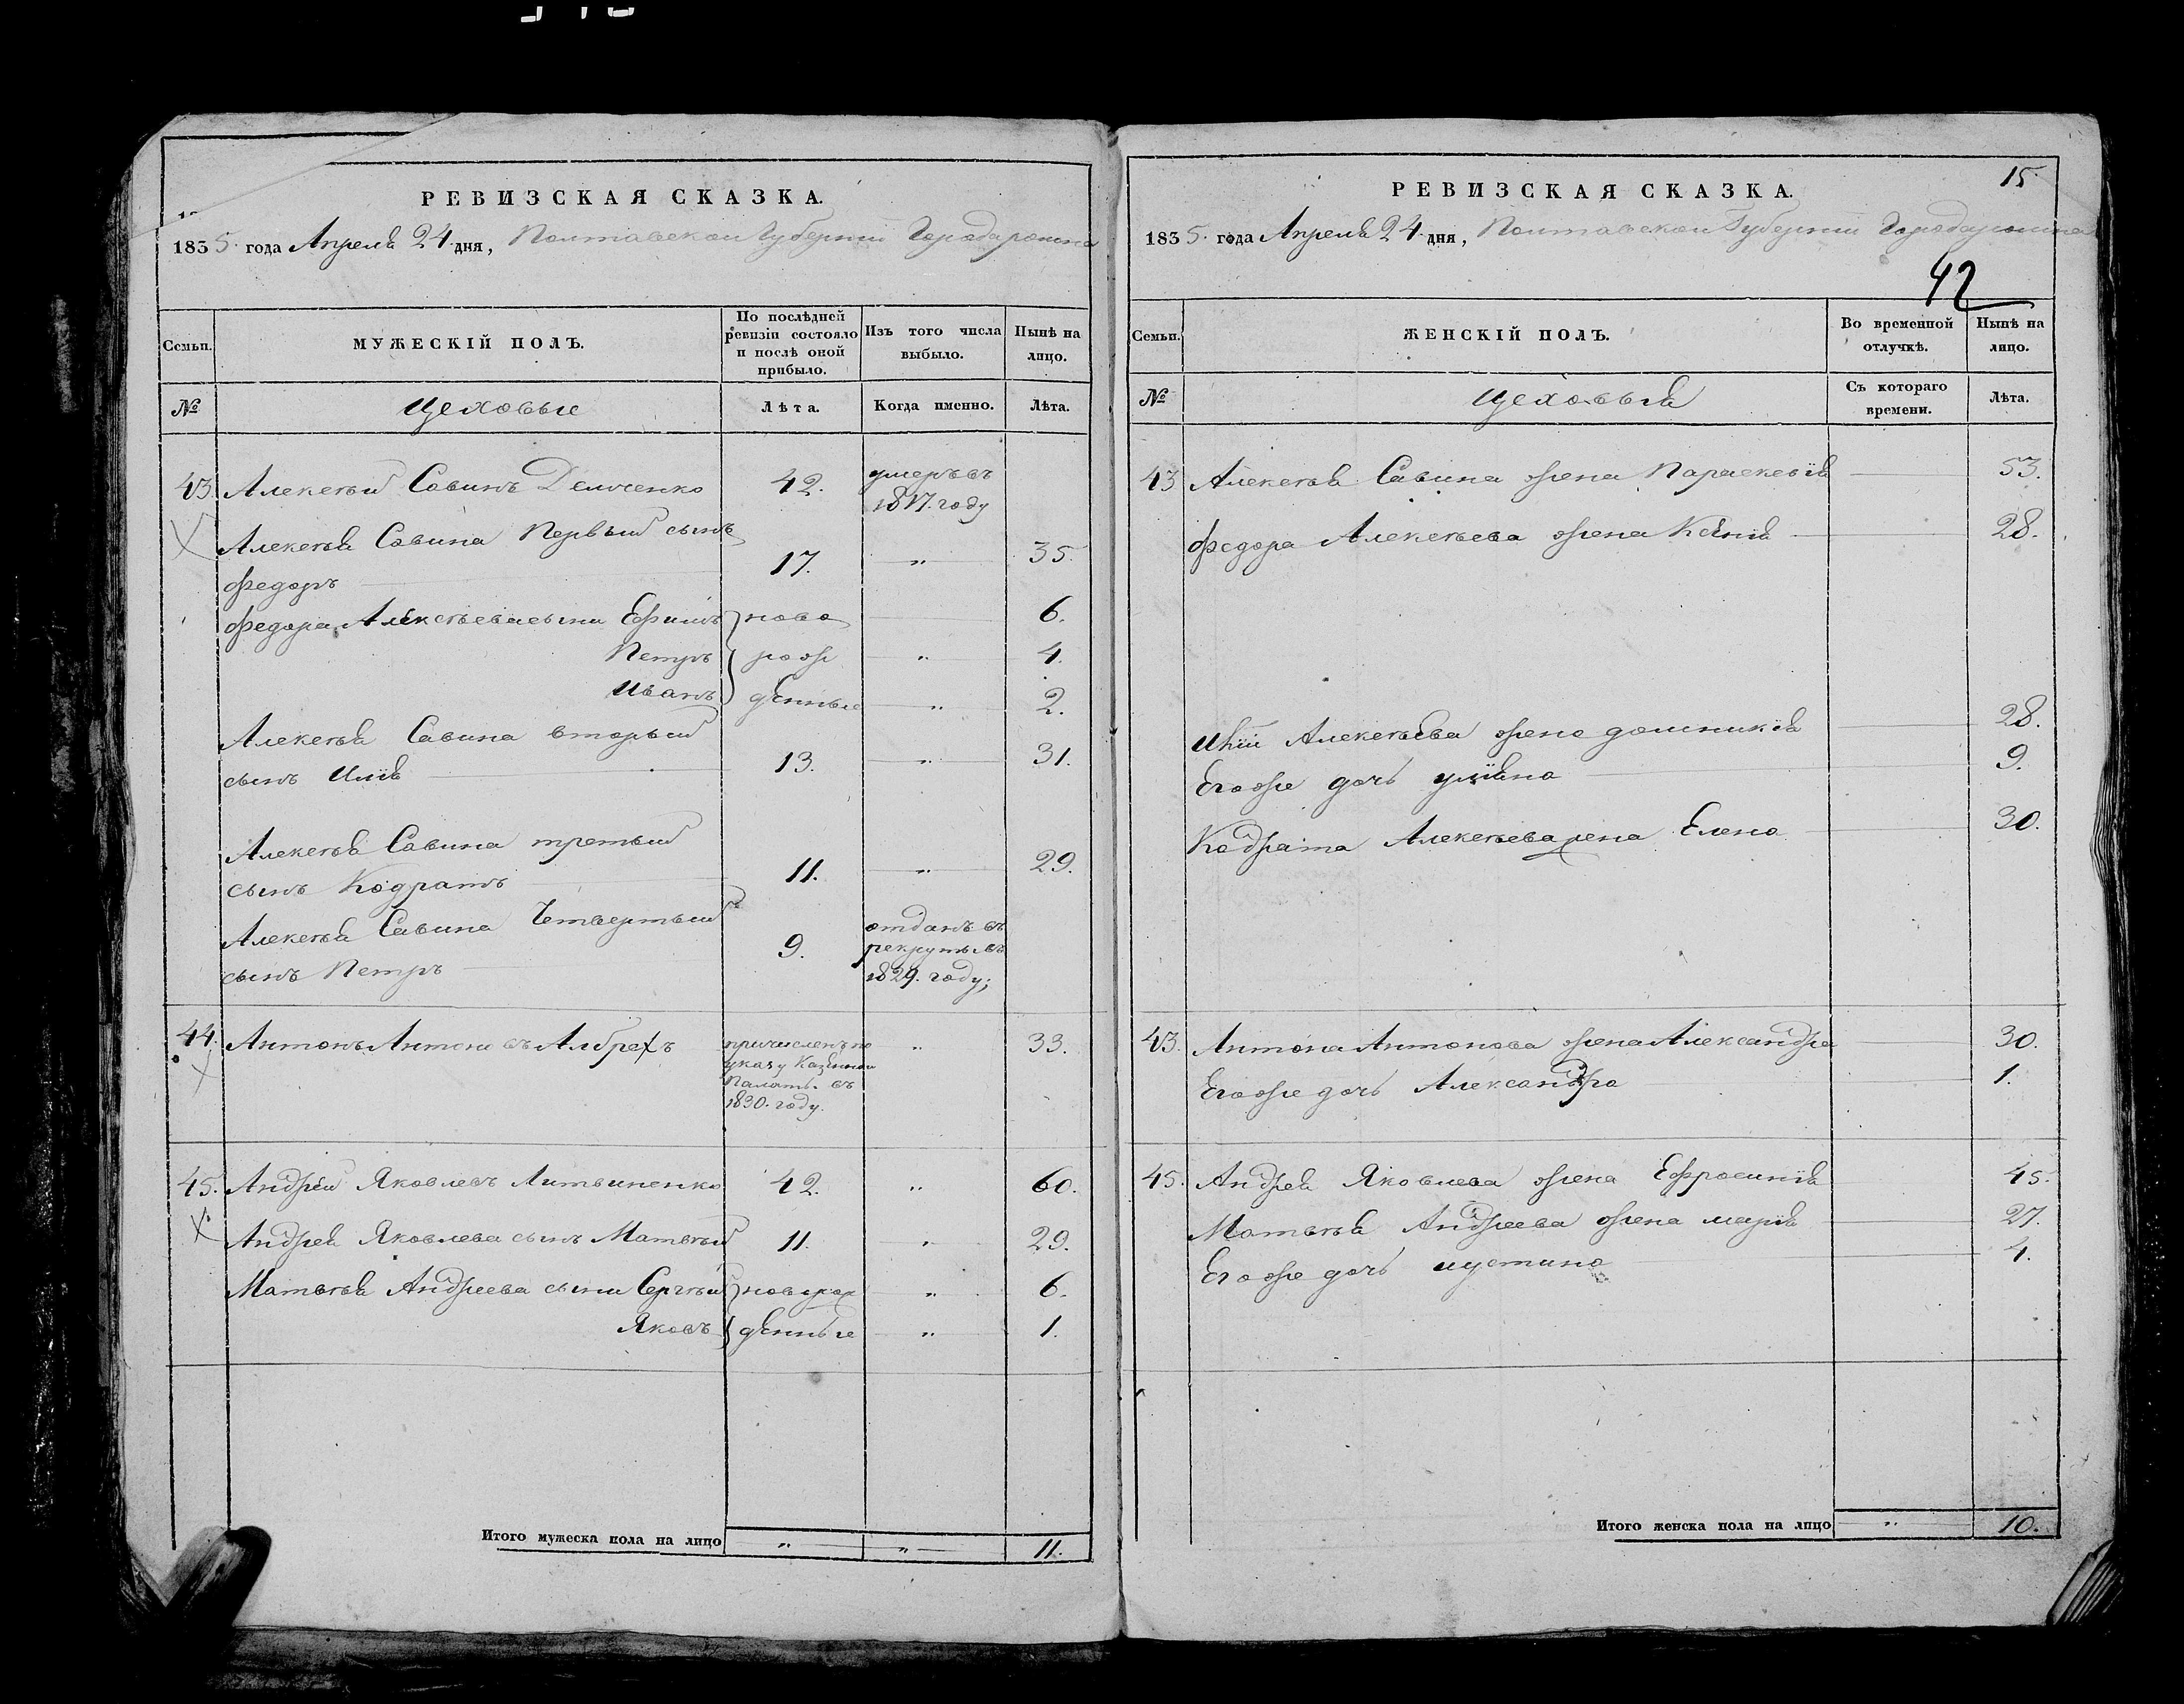 РЕВИЗСКАЯ СКАЗКА.
1835. года Апреля 24. дня, Полтавской Губернии Города ромна
Семьи.
МУЖЕСКІЙ ПОЛЪ.
По послѣдней ревизіи состояло и послѣ оной прибыло.
Изъ того числа выбыло.
Нынѣ на лицо.
№
Цеховые
Лѣта.
Когда именно.
Лѣта.
43. Алексѣй Савинъ Демченко 42. умеръ въ
1817. году
Алексѣя Савина Первый сынъ
Федоръ 17. „ 35.
Федора Алексѣева сыни Ефимъ ново 6.
Петръ рож „ 4.
Иванъ денные „ 2.
Алексѣя Савина вторый
сынъ Илія 13. „ 31.
Алексѣя Савина третый
сынъ Кодратъ 11. „ 29.
Алексѣя Савина Четвертый
сынъ Петръ 9. отданъ въ
рекруты въ
1829. году;
44. Антонъ Антоновъ Албрехъ причисленъ по „ 33.
указу Казенной
Палаты. въ
1830. году.
45. Андрей Яковлевъ Литвиненко 42. „ 60.
Андрея Яковлева сынъ Матвѣй 11. „ 29.
Матвѣя Андреева сыни Сергѣй новорож „ 6.
Яковъ денные „ 1.
Итого мужеска пола на лицо „ „ 11.
15.
РЕВИЗСКАЯ СКАЗКА.
1835. года Апреля 24. дня, Полтавской Губернии Города ромна
42
Семьи.
ЖЕНСКІЙ ПОЛЪ.
Во временной отлучкѣ.
Нынѣ на лицо.
№
Цеховыя
Съ котораго времени.
Лѣта.
43 Алексѣя Савина жена Параскевія 53.
Федора Алексѣева жена Ксенія 28.
Иліи Алексѣева жена домникія 28.
Его же дочь уліяна 9.
Кодрата Алексѣева жена Елена 30.
43. Антона Антонова жена Александра 30.
Его же дочь Александра 1.
45. Андрея Яковлева жена Ефросинія 45.
Матвѣя Андреева жена марія 27.
Его же дочь иустина 4.
Итого женска пола на лицо „ 10.